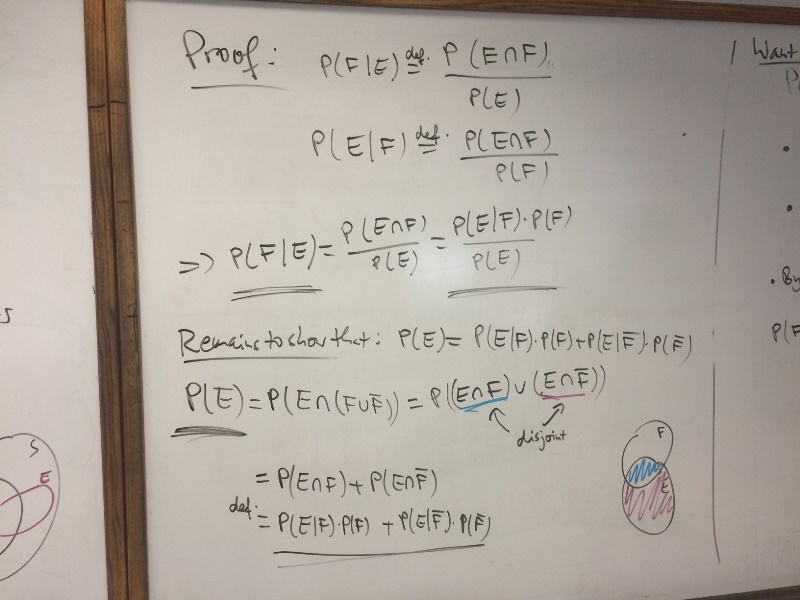 Proof: P(F|E) def. = P(E∩F) / P(E)
P(E|F) def. = P(E∩F) / P(F)
=> P(F|E) = P(E∩F) / P(E) = P(E|F)·P(F) / P(E)
Remains to show that: P(E) = P(E|F)·P(F)+P(E|F̅)·P(F̅)
P(E) = P(E∩(F∪F̅)) = P((E∩F)∪(E∩F̅))
disjoint
= P(E∩F)+P(E∩F̅)
def. = P(E|F)·P(F) + P(E|F̅)·P(F̅)
F
E
S
E
Want
• By
P(F